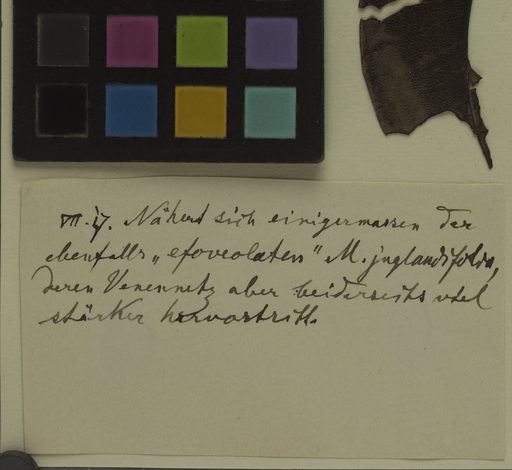 VII. 17. Nähert sich einigermassen der
ebenfalls „efoveolaten“ M. juglandifolia,
deren Venennetz aber beiderseits viel
stärker hervortritt.